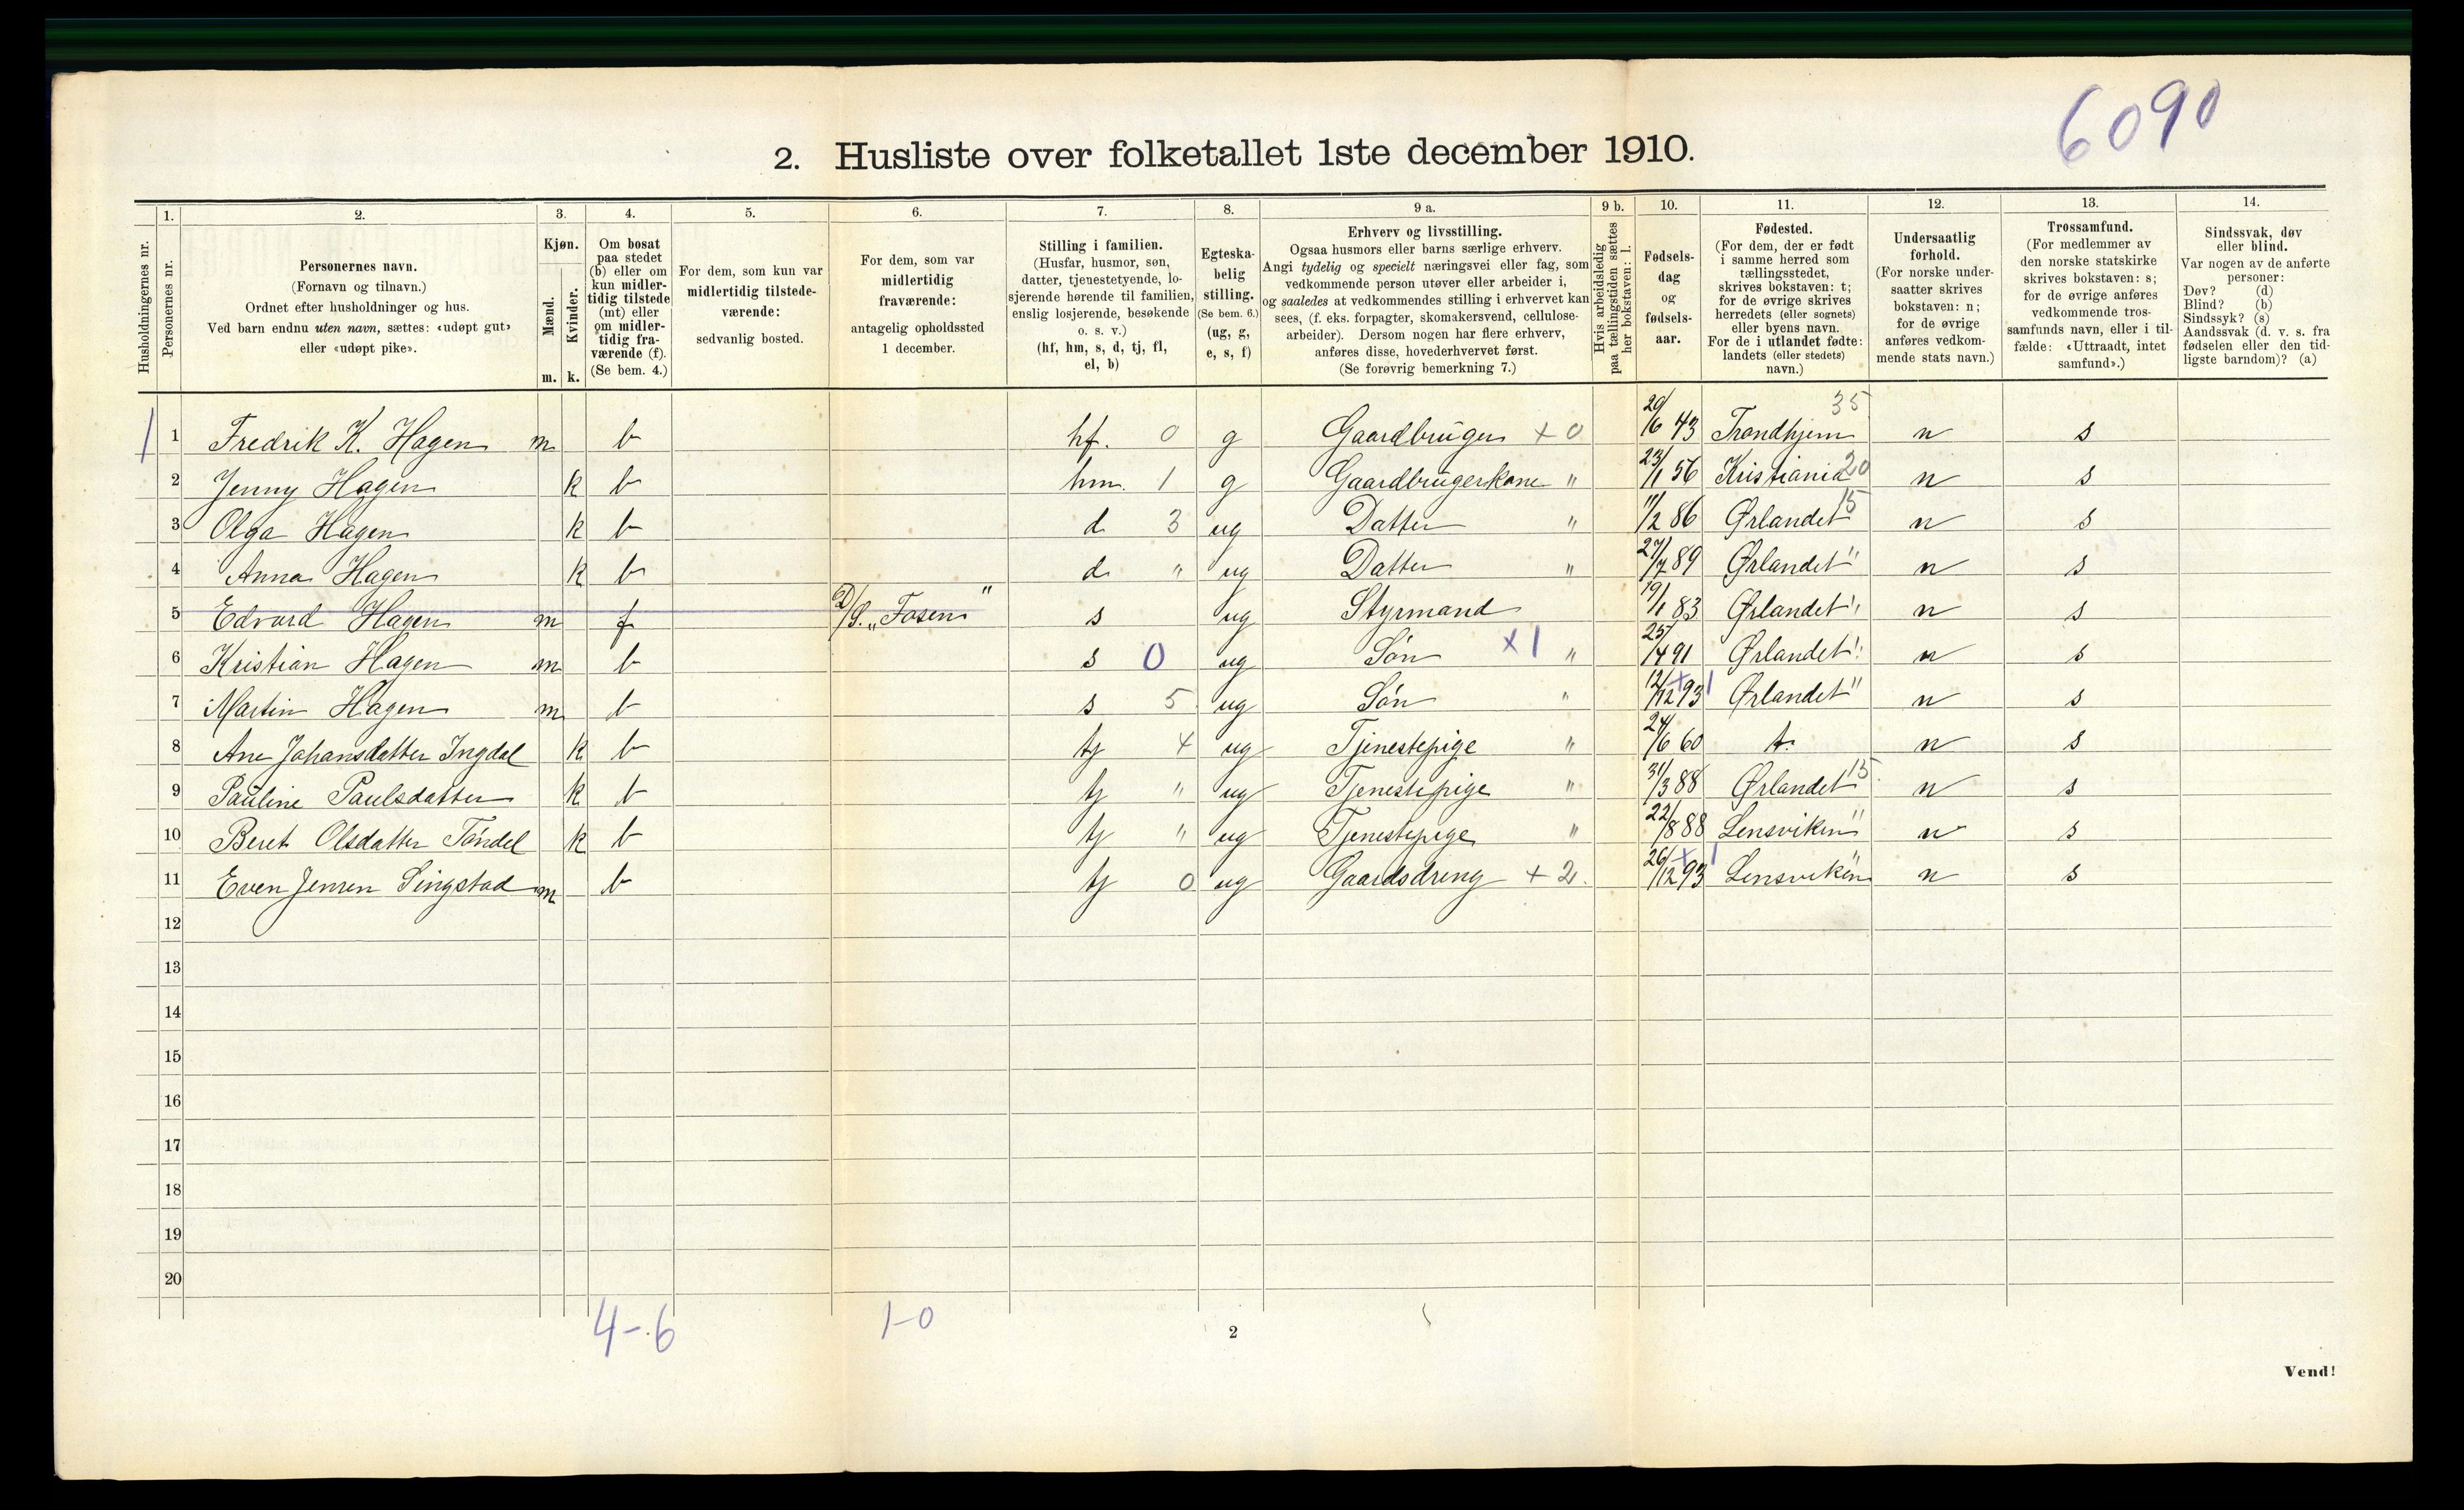 6090
2. Husliste over folketallet 1ste december 1910.
Husholdningernes nr.
1. Personernes nr.
2. Personernes navn. (Fornavn og tilnavn.) Ordnet efter husholdninger og hus. Ved barn endnu uten navn, sættes: «udøpt gut» eller «udøpt pike».
3. Kjøn. Mænd. m. Kvinder. k.
4. Om bosat paa stedet (b) eller om kun midlertidig tilstede (mt) eller om midlertidig fraværende (f). (Se bem. 4.)
5. For dem, som kun var midlertidig tilstedeværende: sedvanlig bosted.
6. For dem, som var midlertidig fraværende: antagelig opholdssted 1 december.
7. Stilling i familien. (Husfar, husmor, søn, datter, tjenestetyende, losjerende hørende til familien, enslig losjerende, besøkende o. s. v.) (hf, hm, s, d, tj, fl, el, b)
8. Egteskabelig stilling. (Se bem. 6.) (ug, g, e, s, f)
9 a. Erhverv og livsstilling. Ogsaa husmors eller barns særlige erhverv. Angi tydelig og specielt næringsvei eller fag, som vedkommende person utøver eller arbeider i, og saaledes at vedkommendes stilling i erhvervet kan sees, (f. eks. forpagter, skomakersvend, cellulosearbeider). Dersom nogen har flere erhverv, anføres disse, hovederhvervet først. (Se forøvrig bemerkning 7.)
9 b. Hvis arbeidsledig paa tællingstiden sættes her bokstaven: l.
10. Fødselsdag og fødselsaar.
11. Fødested. (For dem, der er født i samme herred som tællingsstedet, skrives bokstaven: t; for de øvrige skrives herredets (eller sognets) eller byens navn. For de i utlandet fødte: landets (eller stedets) navn.)
12. Undersaatlig forhold. (For norske undersaatter skrives bokstaven: n; for de øvrige anføres vedkommende stats navn.)
13. Trossamfund. (For medlemmer av den norske statskirke skrives bokstaven: s; for de øvrige anføres vedkommende trossamfunds navn, eller i tilfælde: «Uttraadt, intet samfund».)
14. Sindssvak, døv eller blind. Var nogen av de anførte personer: Døv? (d) Blind? (b) Sindssyk? (s) Aandssvak (d. v. s. fra fødselen eller den tidligste barndom)? (a)
1 1 Fredrik K. Hagen m b hf. 0 g Gaardbruger + 0 20/6 43 Trondhjem 35 n s
2 Jenny Hagen k b hm. 1 g Gaardbrugerkone " 23/1 56 Kristiania 20 n s
3 Olga Hagen k b d 3 ug Datter " 11/2 86 Ørlandet 15 n s
4 Anna Hagen k b d " ug Datter " 27/7 89 Ørlandet " n s
5 Edvard Hagen m f D/S. "Fosen" s ug Styrmand 19/1 83 Ørlandet " n s
6 Kristian Hagen m b s 0 ug Søn x 1 " 25/4 91 Ørlandet " n s
7 Martin Hagen m b s 5 ug Søn " 12/12 93 + 1 Ørlandet " n s
8 Ane Johansdatter Ingdal k b tj 4 ug Tjenestepige " 24/6 60 t. n s
9 Pauline Paulsdatter k b tj " ug Tjenestepige " 31/3 88 Ørlandet 15 n s
10 Beret Olsdatter Tøndel k b tj " ug Tjenestepige " 22/8 88 Lensviken " n s
11 Even Jensen Singstad m b tj 0 ug Gaardsdreng + 2. 26/12 93 + 1 Lensviken " n s
12
13
14
15
16
17
18
19
20
4-6 1-0
2
Vend!